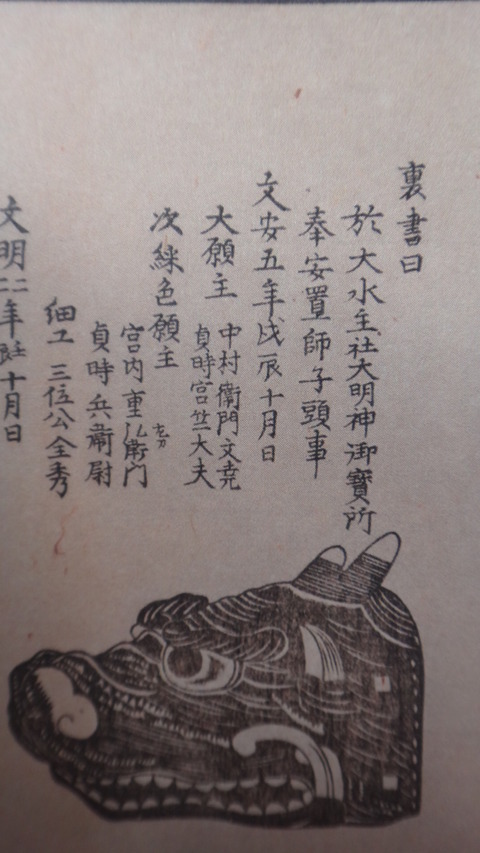 裏書曰
於大水主社大明神御寶所
奉安置師子頭事
文安五年戊辰十月日
大願主 中村衛門文尭
貞時宮竺大夫
次綵色願主
宮内重 衛門
貞時兵衛尉
細工 三位公全秀
文明二二年 十月日